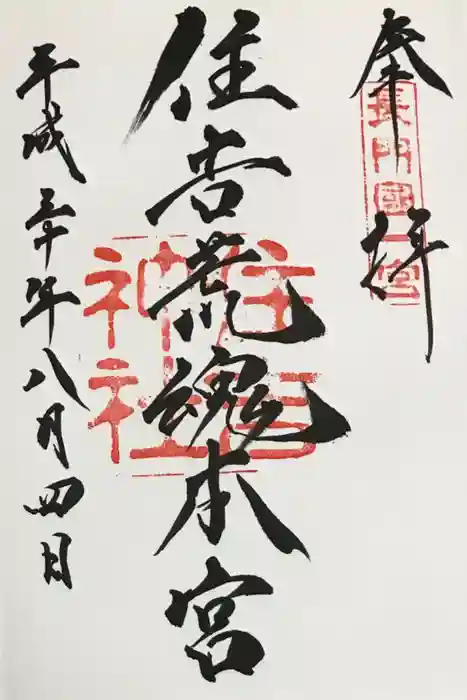 奉拝
長門國一宮
住吉荒魂本宮
住吉神社
平成三十年八月四日